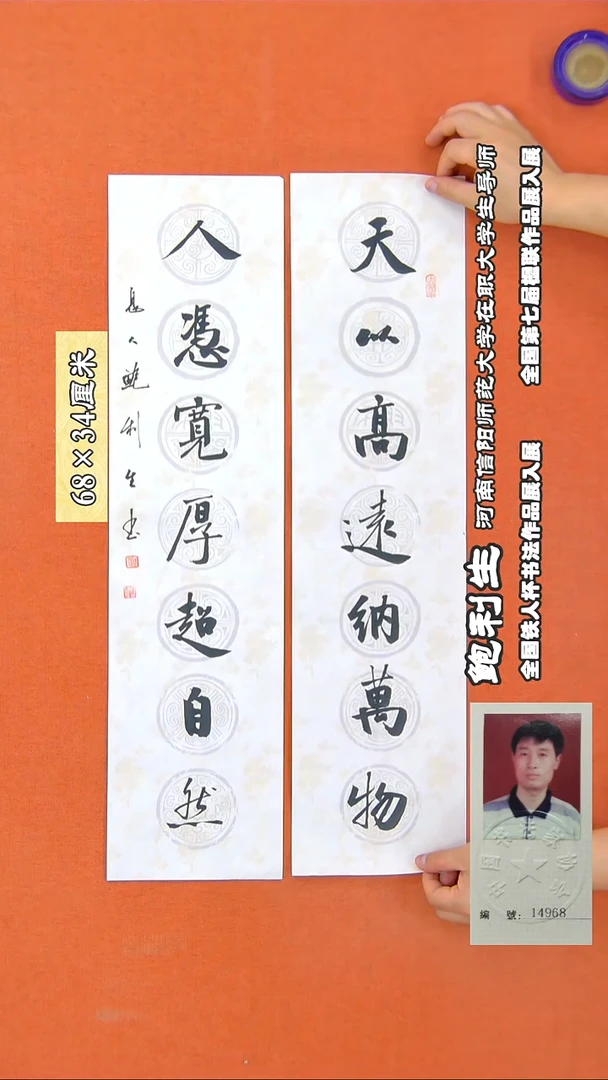 天以高遠纳萬物
人憑寬厚超自然
息人鲍利生书
68×34厘米
鲍利生
河南信阳师范大学在职大学生导师
全国第七届楹联作品展入展
全国铁人杯书法作品展入展
編 號: 14968